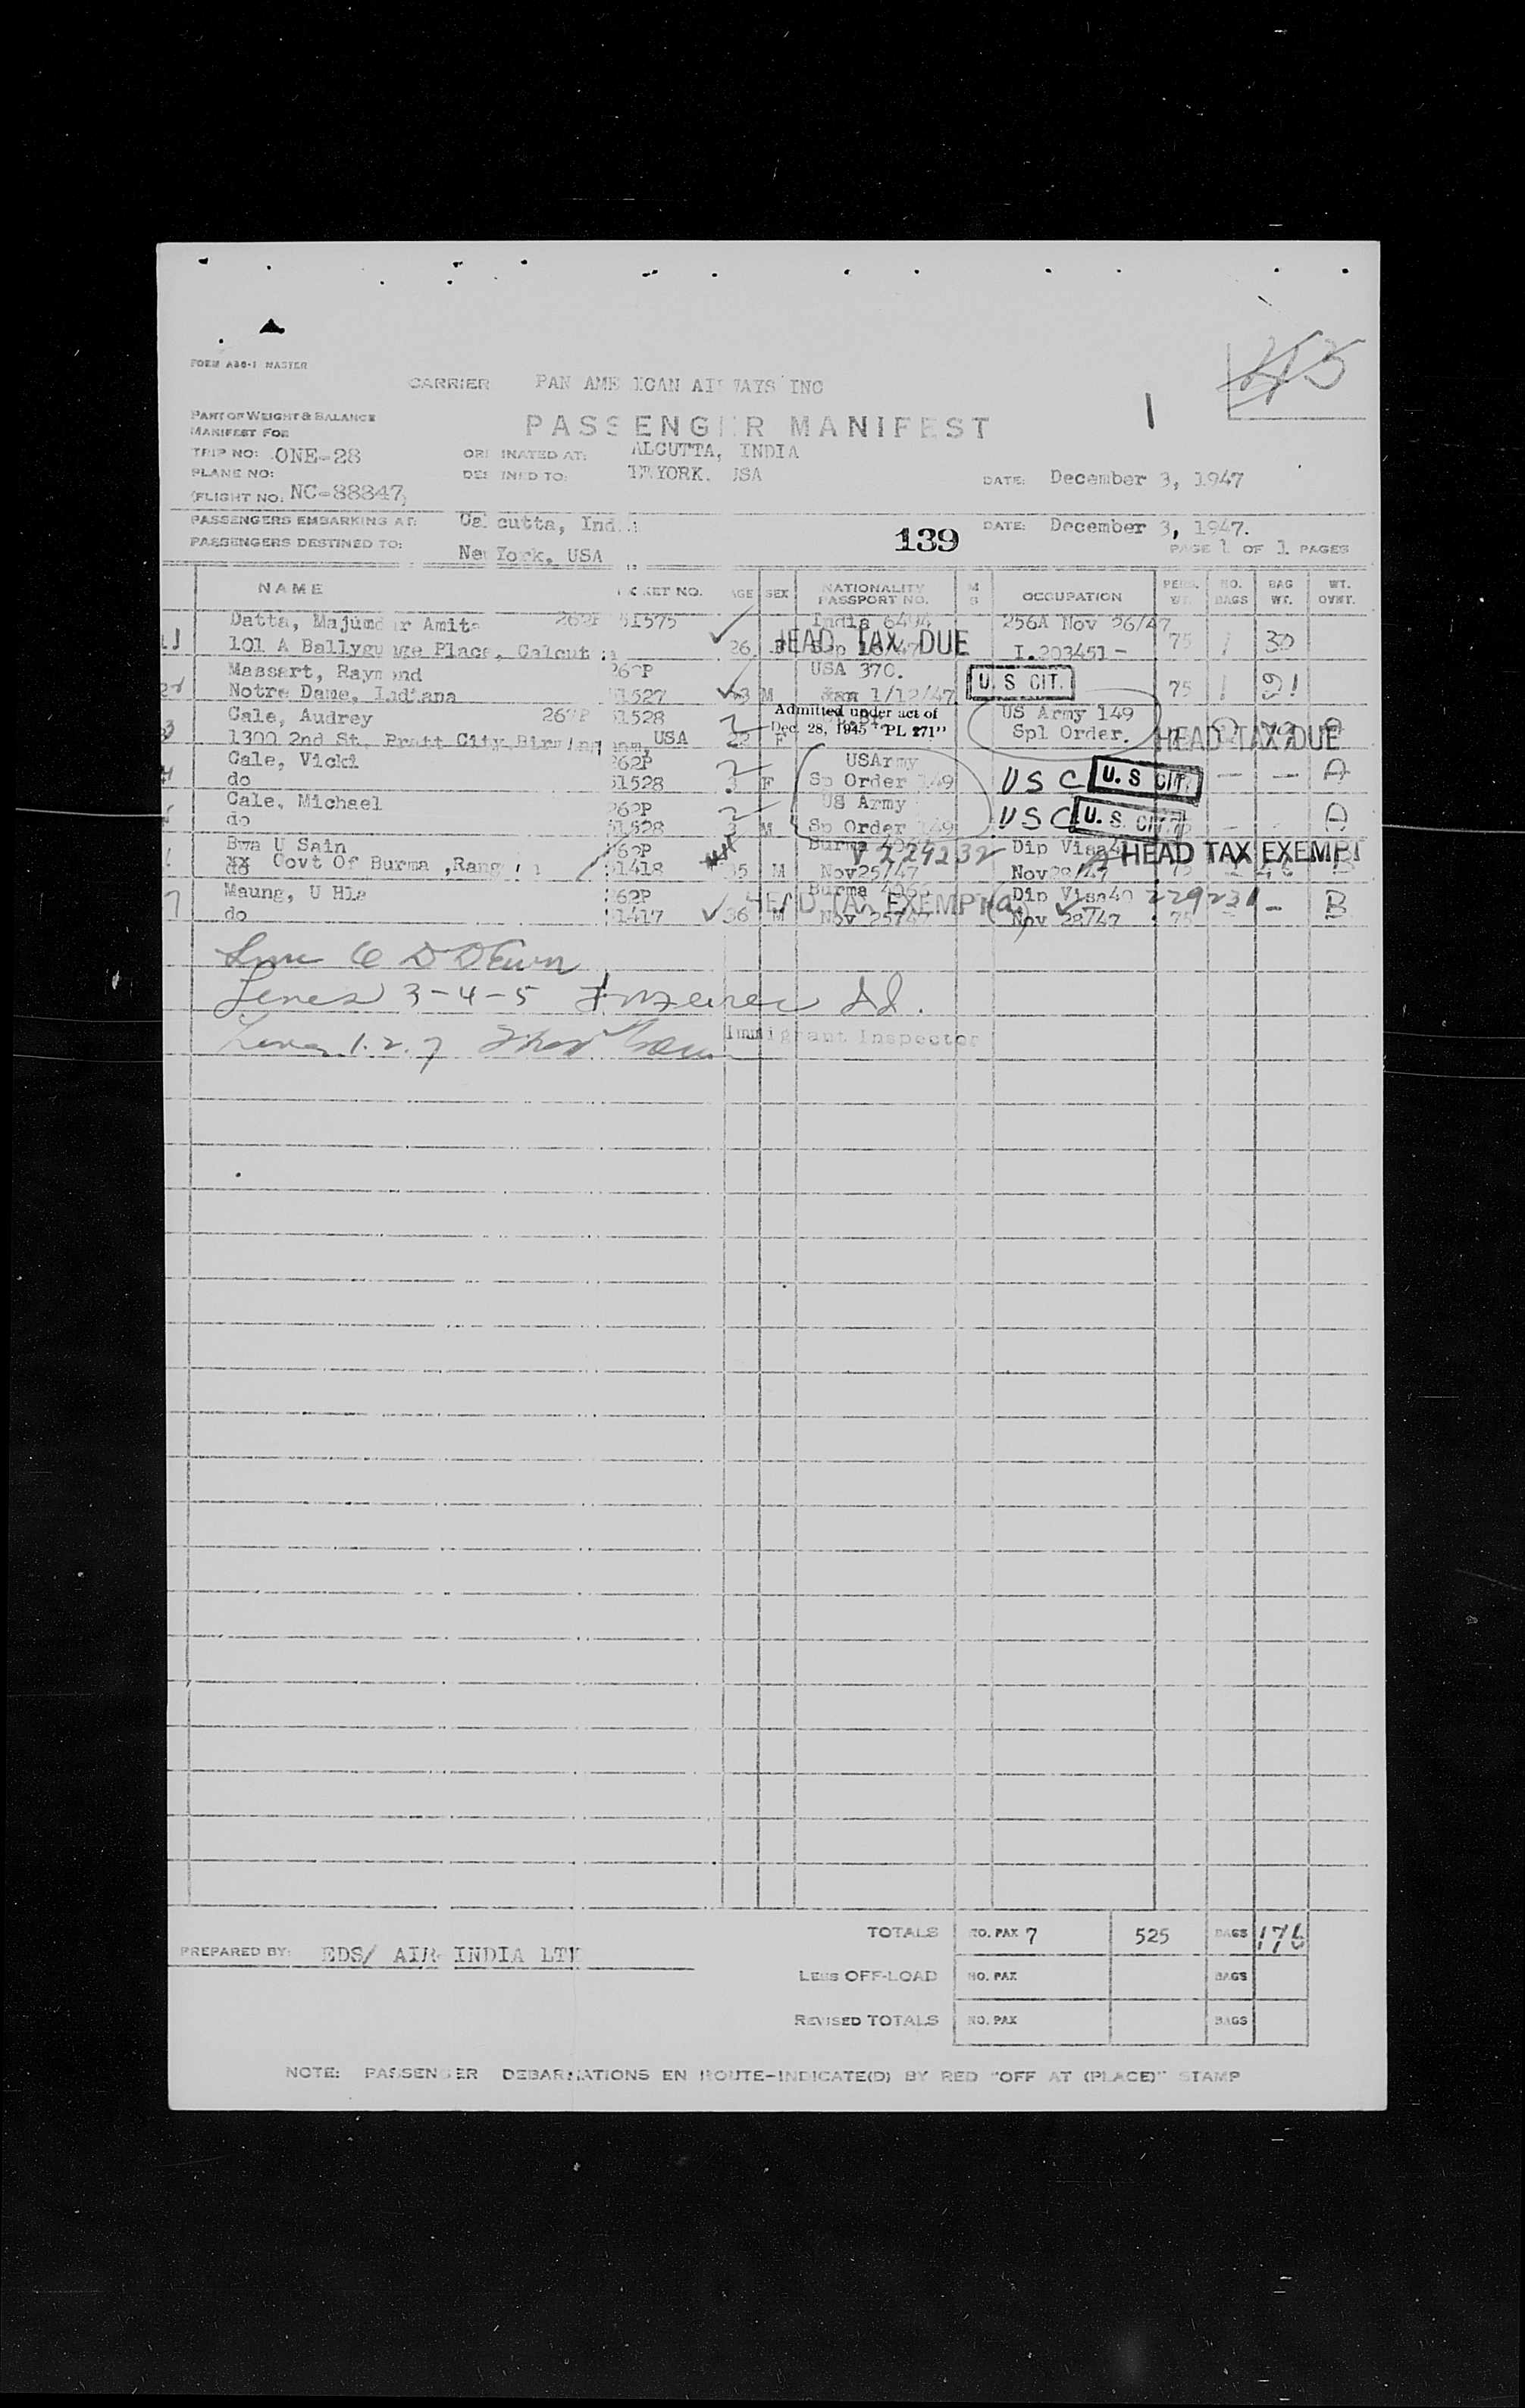 FORM A80-1 MASTER
CARRIER PAN AMERICAN AIRWAYS INC
PART OF WEIGHT & BALANCE
MANIFEST FOR
PASSENGER MANIFEST
TRIP NO: ONE-28 ORIGINATED AT: CALCUTTA, INDIA
PLANE NO: DESTINED TO: NEW YORK. USA DATE: December 3, 1947
(FLIGHT NO: NC-88847)
PASSENGERS EMBARKING AT: Calcutta, India 139 DATE: December 3, 1947.
PASSENGERS DESTINED TO: New York, USA PAGE 1 OF 1 PAGES
NAME TICKET NO. AGE SEX NATIONALITY PASSPORT NO. M S OCCUPATION PERS. WT. NO. BAGS BAG WT. WT. OVWT.
Datta, Majumdar Amita 262P 51575 India 6494 256A Nov 26/47
1 101 A Ballygunge Place, Calcutta 26 HEAD TAX DUE I.203451- 75 1 30
Massart, Raymond 262P USA 370.
Notre Dame, Indiana 51527 M Jan 1/12/47 U. S CIT. 75 1
Cale, Audrey 262P 51528 Admitted under act of US Army 149
3 1300 2nd St, Pratt City, Birmingham, USA 22 F Dec. 28, 1945 "PL 271" Spl Order. HEAD TAX DUE
Cale, Vicki 262P USArmy
4 do 51528 3 F Sp Order 149 USC U. S CIT. - - A
Cale, Michael 262P US Army
do 51528 3 M Sp Order 149 USC U. S. CIT. - - A
Bwa U Sain 262P Burma V 229232 Dip Visa HEAD TAX EXEMPT
xx do Govt Of Burma, Rangoon 51418 35 M Nov25/47 Nov28/47
Maung, U Hla 262P Burma 4065 Dip Visa40 229231 - B
7 do 51417 36 M HEAD TAX EXEMPT Nov 25/47 Nov 28/47 75
Line 6
Lines 3-4-5
Lines 1.2.7 Immigrant Inspector
TOTALS NO. PAX 7 525 BAGS 176
PREPARED BY: EDS/ AIR INDIA LTD
LESS OFF-LOAD NO. PAX BAGS
REVISED TOTALS NO. PAX BAGS
NOTE: PASSENGER DEBARKATIONS EN ROUTE-INDICATE(D) BY RED "OFF AT (PLACE)" STAMP